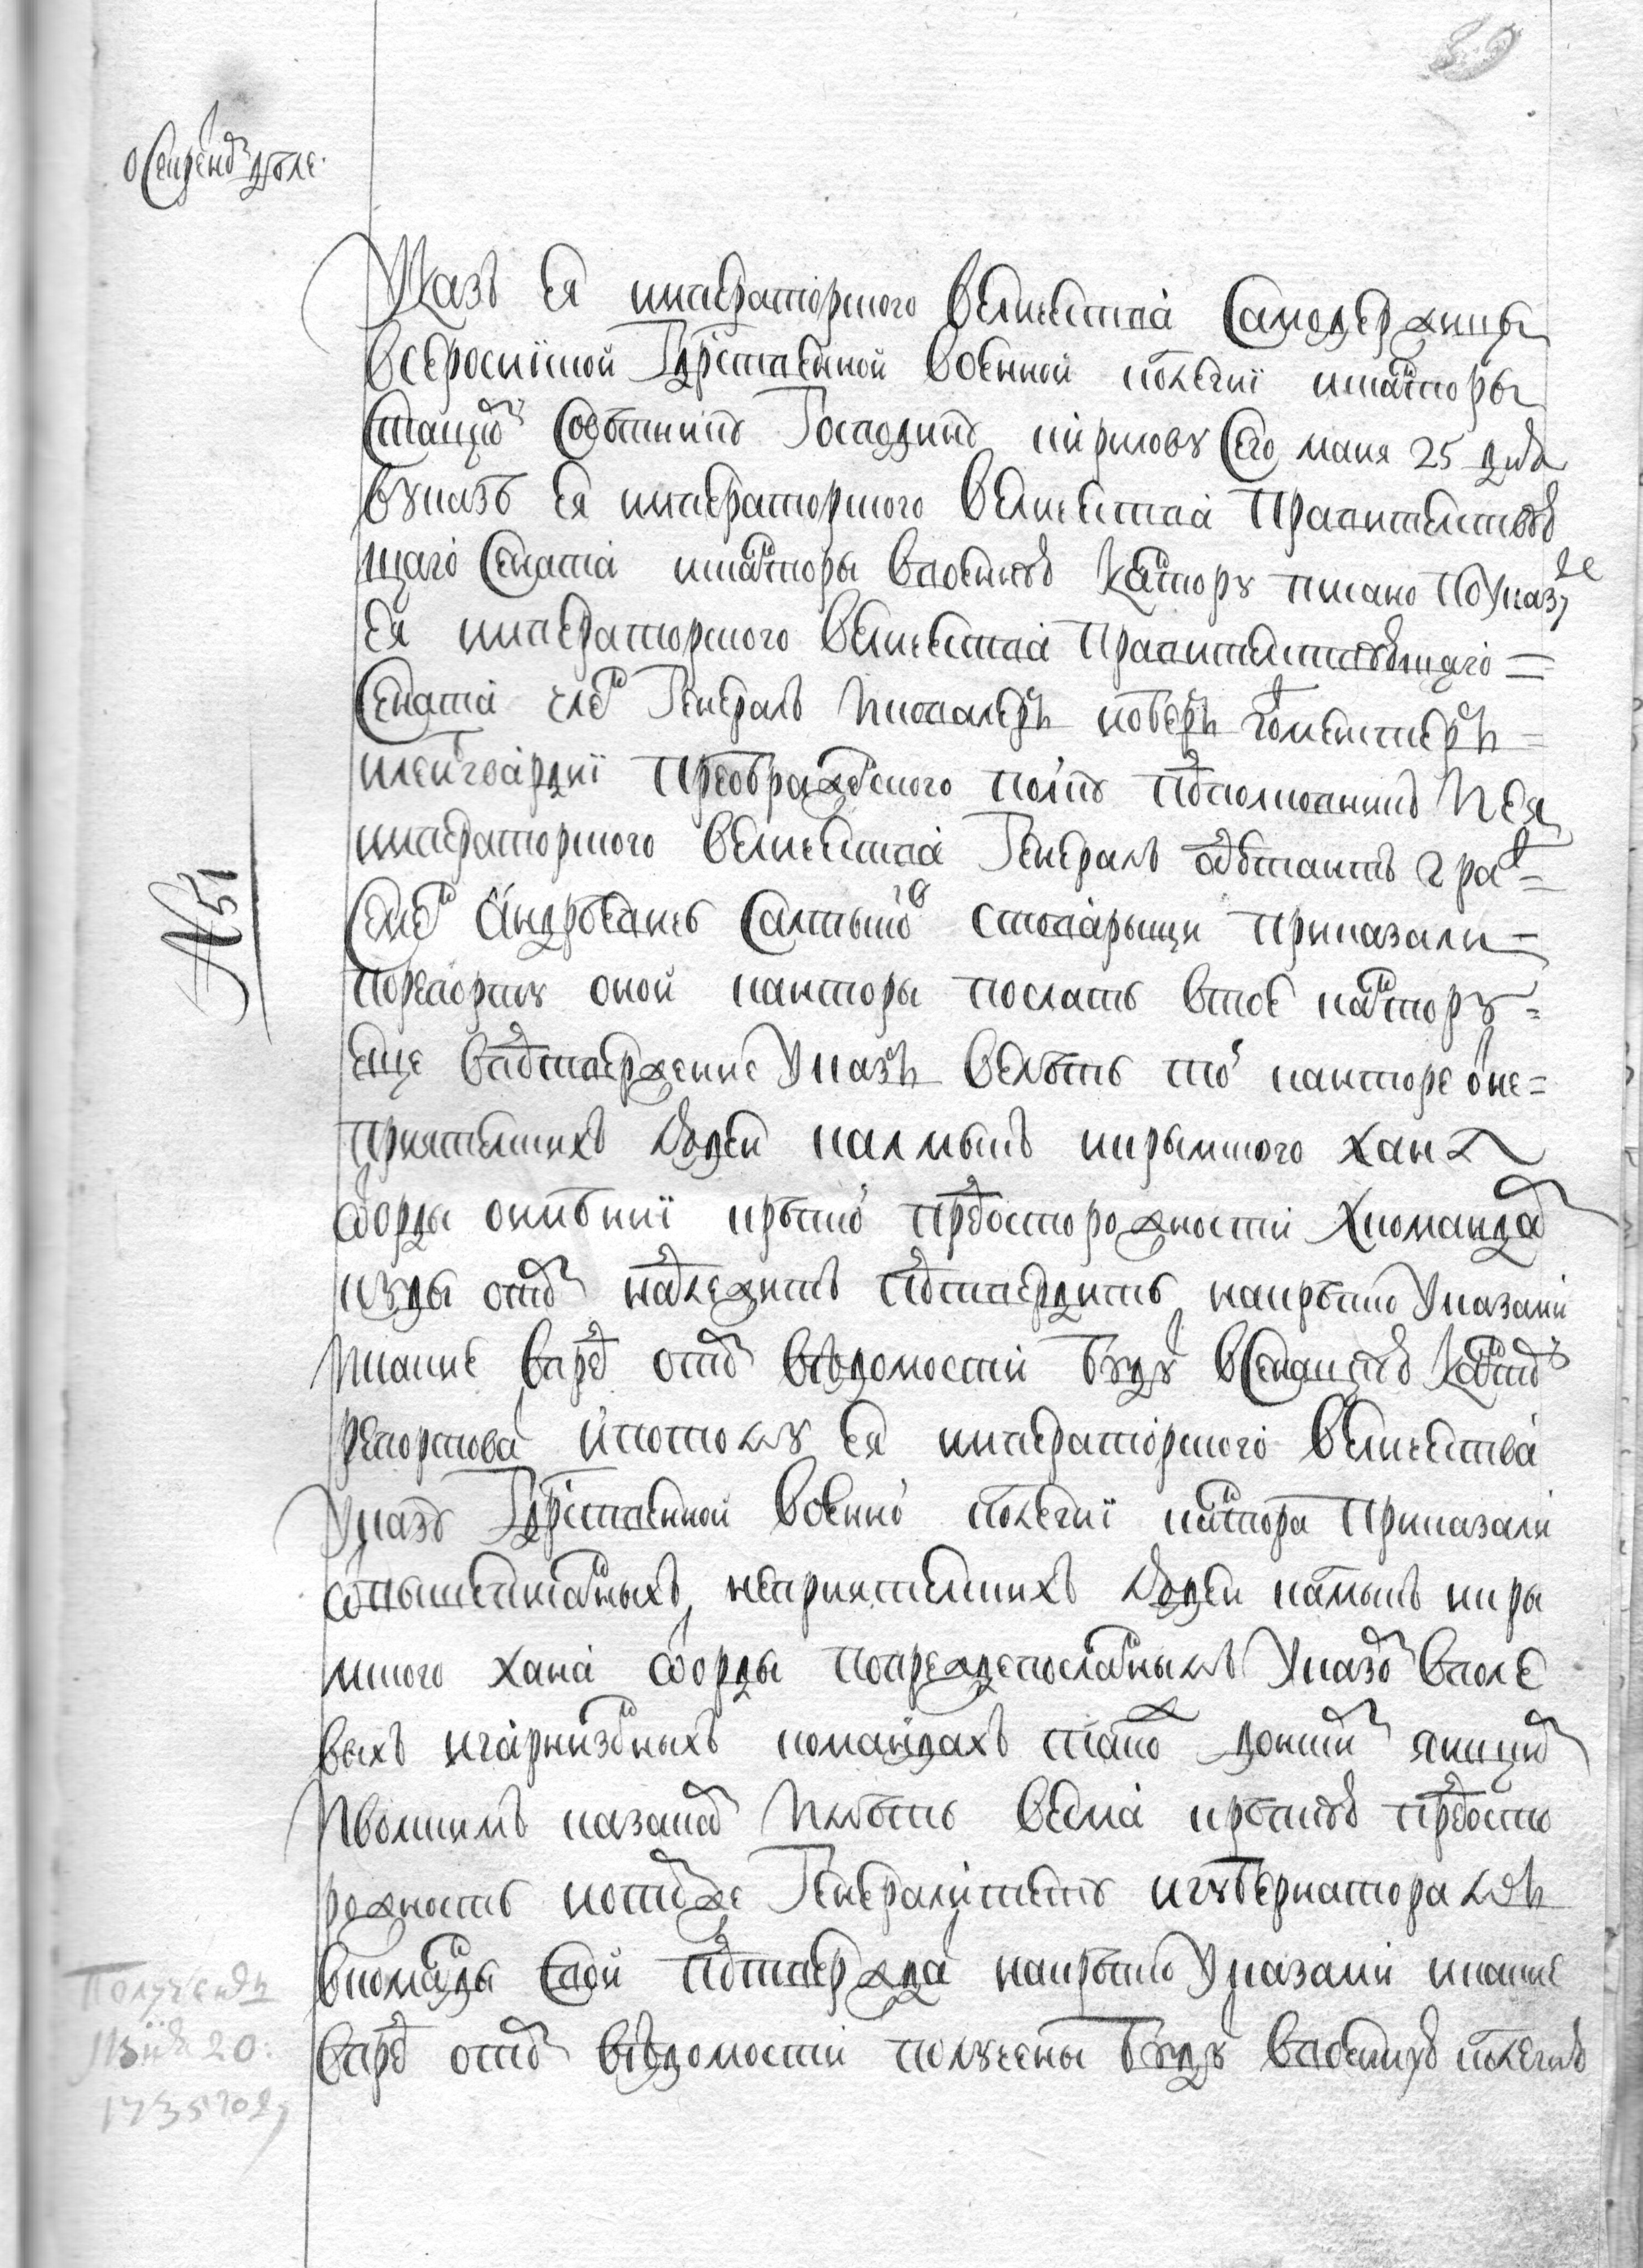 89
о Сеиренъ дѣле.
Указъ Ея императорского величества Самодержицы
всеросиiской Гдрственной военной колегиi исканторы
Статцкому Советнику Господину кирилову Сего маия 25 дня
вуказѣ Ея императорского величества Правителствую
щаго Сената исканторы ввоенную Кантору писано Поуказу
Ея императорского величества Правителствующаго =
Сената члены Генералъ Кавалеръ оберъ гофмеистеръ =
илеибгвардиi Преображенского полку подполковникъ И Ея
императорского величества Генералъ адъютантъ граф =
Семенъ Андрѣевичь Салтыковъ стоварыщи приказали =
порепорту оной канторы послать втое кантору =
еще вподтверждение Указъ велѣть той канторе оне =
приятелскихъ людей калмыкъ икрымского хана
ѿорды очинѣниi крѣпкой предосторожности Хкомандамъ
куды отом надлежитъ подтвердить накрѣпко Указами
Ичаще впредь отом вѣдомости будутъ вСенацкую Кантору
репортовать ипотому Ея императорского величества
Указу Гдрственной военной колегиi кантора Приказали
ѿвышеписанныхъ неприятелскихъ людей калмыкъ икры
мского хана ѿорды попреждепосланнымъ Указом вполе
выхъ игарнизонныхъ командахъ також донским яицким
Иволскимъ казакам Имѣть велма крѣпкую предосто
рожность котомуже Генералитету игубернаторамъ
вкоманды Свои подтвержда накрѣпко Указами ичаще
впредь отом вѣдомости получены будутъ ввоенную колегию
№ 51
Полученъ
Июня 20:
1735 году